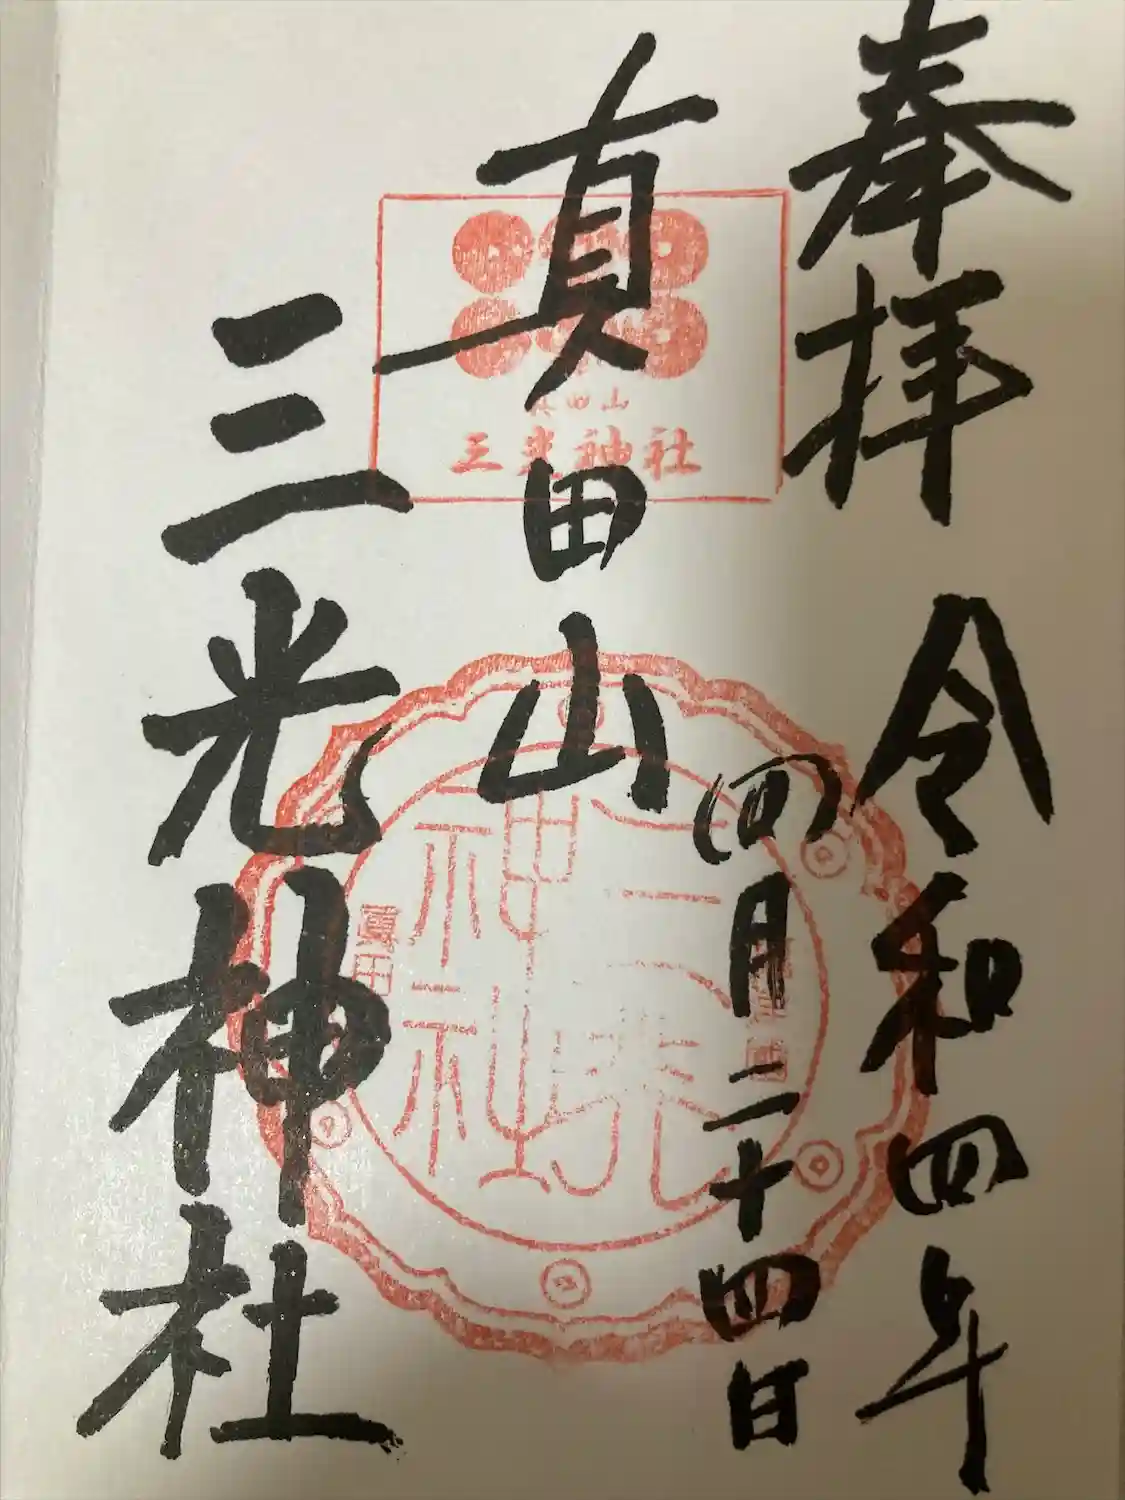 奉拝
令和四年
四月二十四日
真田山
三光神社
真田山
三光神社
三光神社